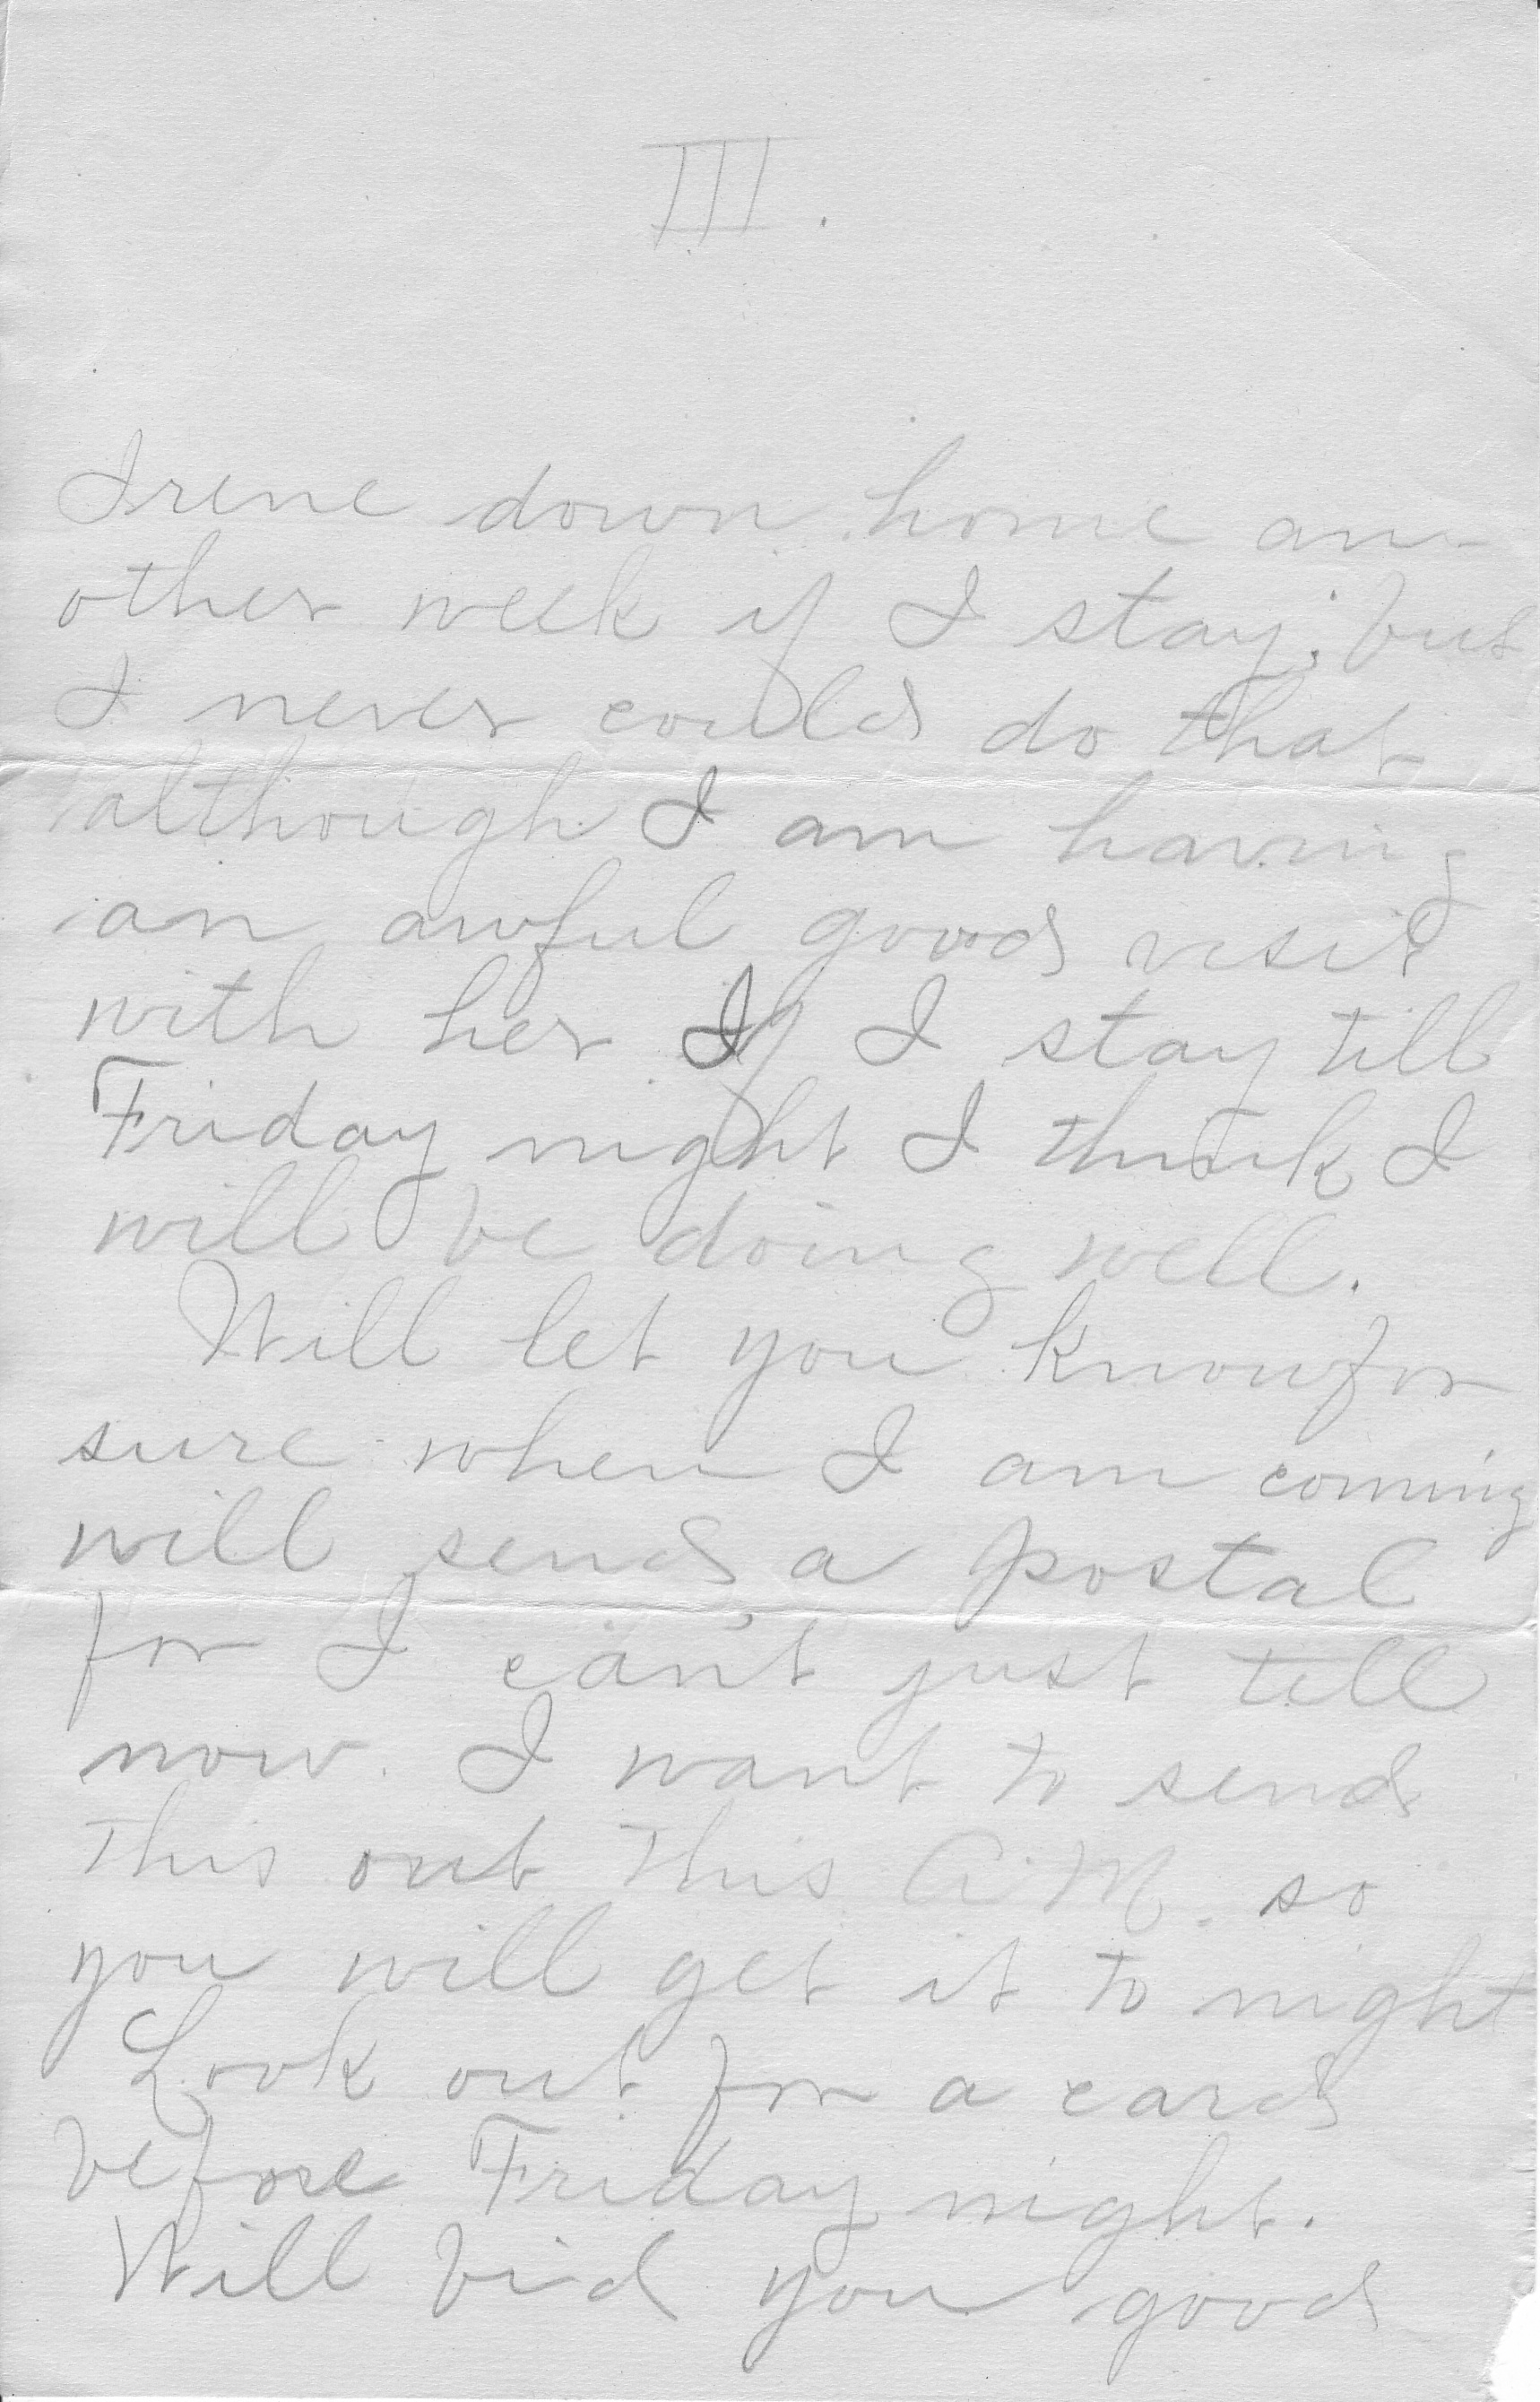 III.
Irene down home an-
other week if I stay; but
I never could do that
although I am having
an awful good visit
with her If I stay till
Friday night I think I
will be doing well.
Will let you know for
sure when I am coming
will send a postal
for I can't just tell
now. I want to send
this out this A.M. so
you will get it to night
Look out for a card
before Friday night.
Will bid you good